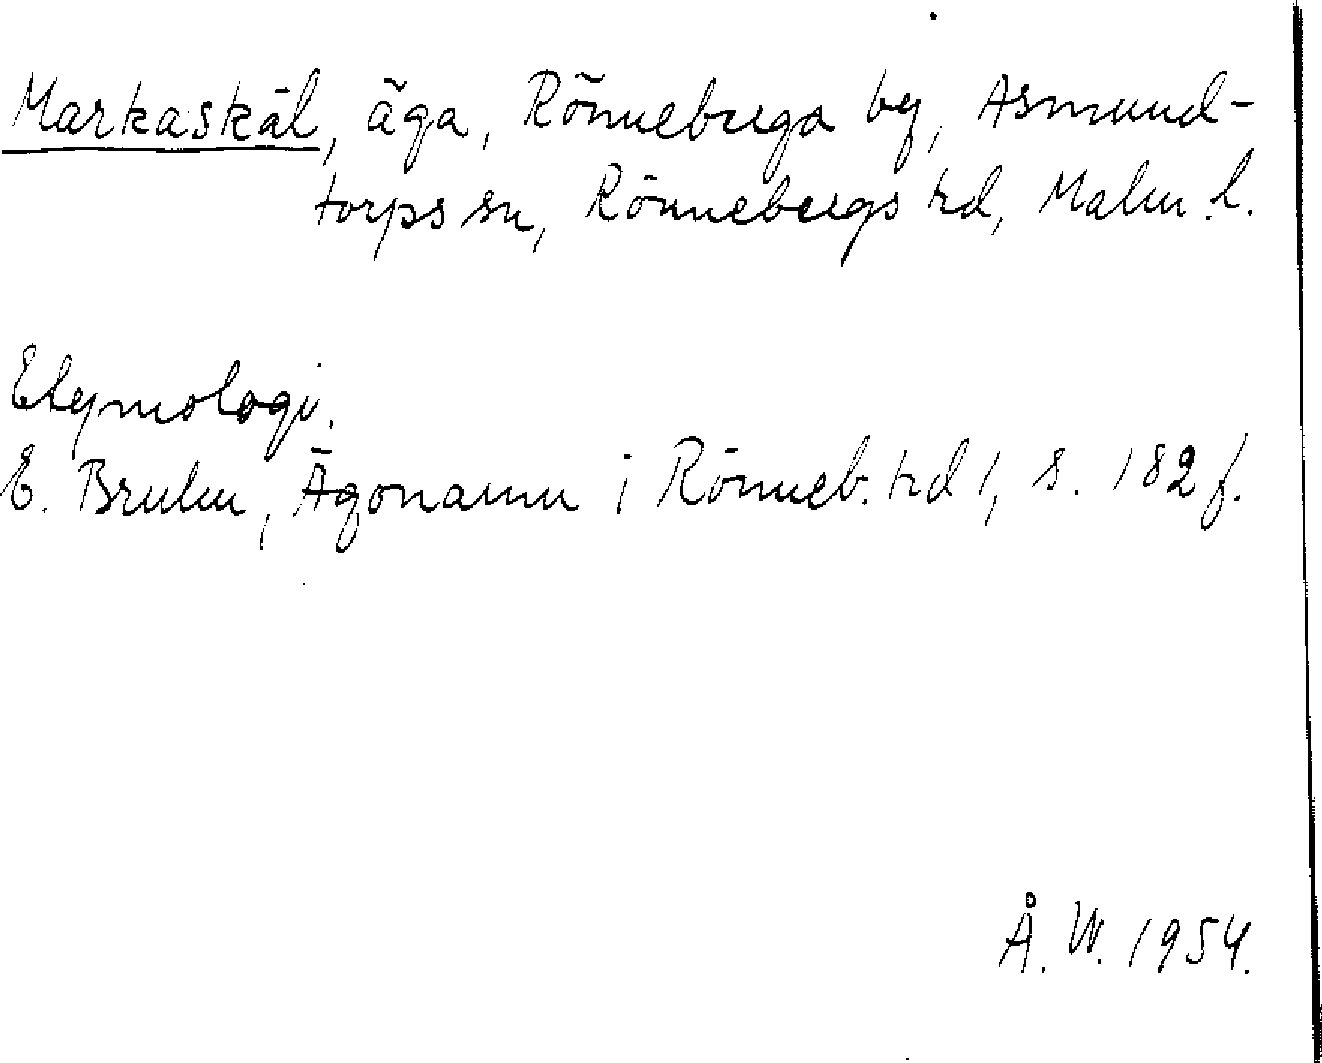 Markaskäl, äga, Rönneberga by, Asmund-
torps sn, Rönnebergs hd, Malm. l.
Etymologi.
E. Bruhn, Ägonamn i Rönneb. hd 1, s. 182 f.
Å. W. 1954.